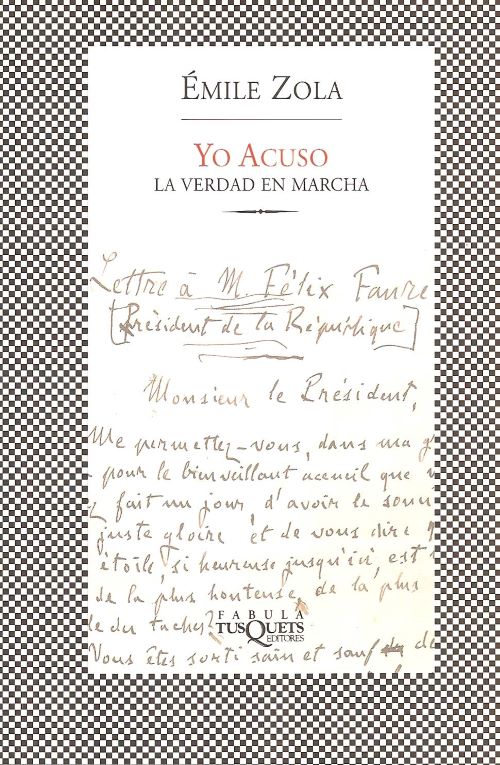 ÉMILE ZOLA
YO ACUSO
LA VERDAD EN MARCHA
Lettre à M. Félix Faure
[Président de la République]
Monsieur le Président,
Me permettez-vous, dans ma g
pour le bienveillant accueil que
fait un jour, d'avoir le souci
juste gloire et de vous dire q
étoile, si heureuse jusqu'ici, est
de la plus honteuse, de la plus
FABULA
TUSQUETS
EDITORES
le des taches?
Vous êtes sorti sain et sauf de